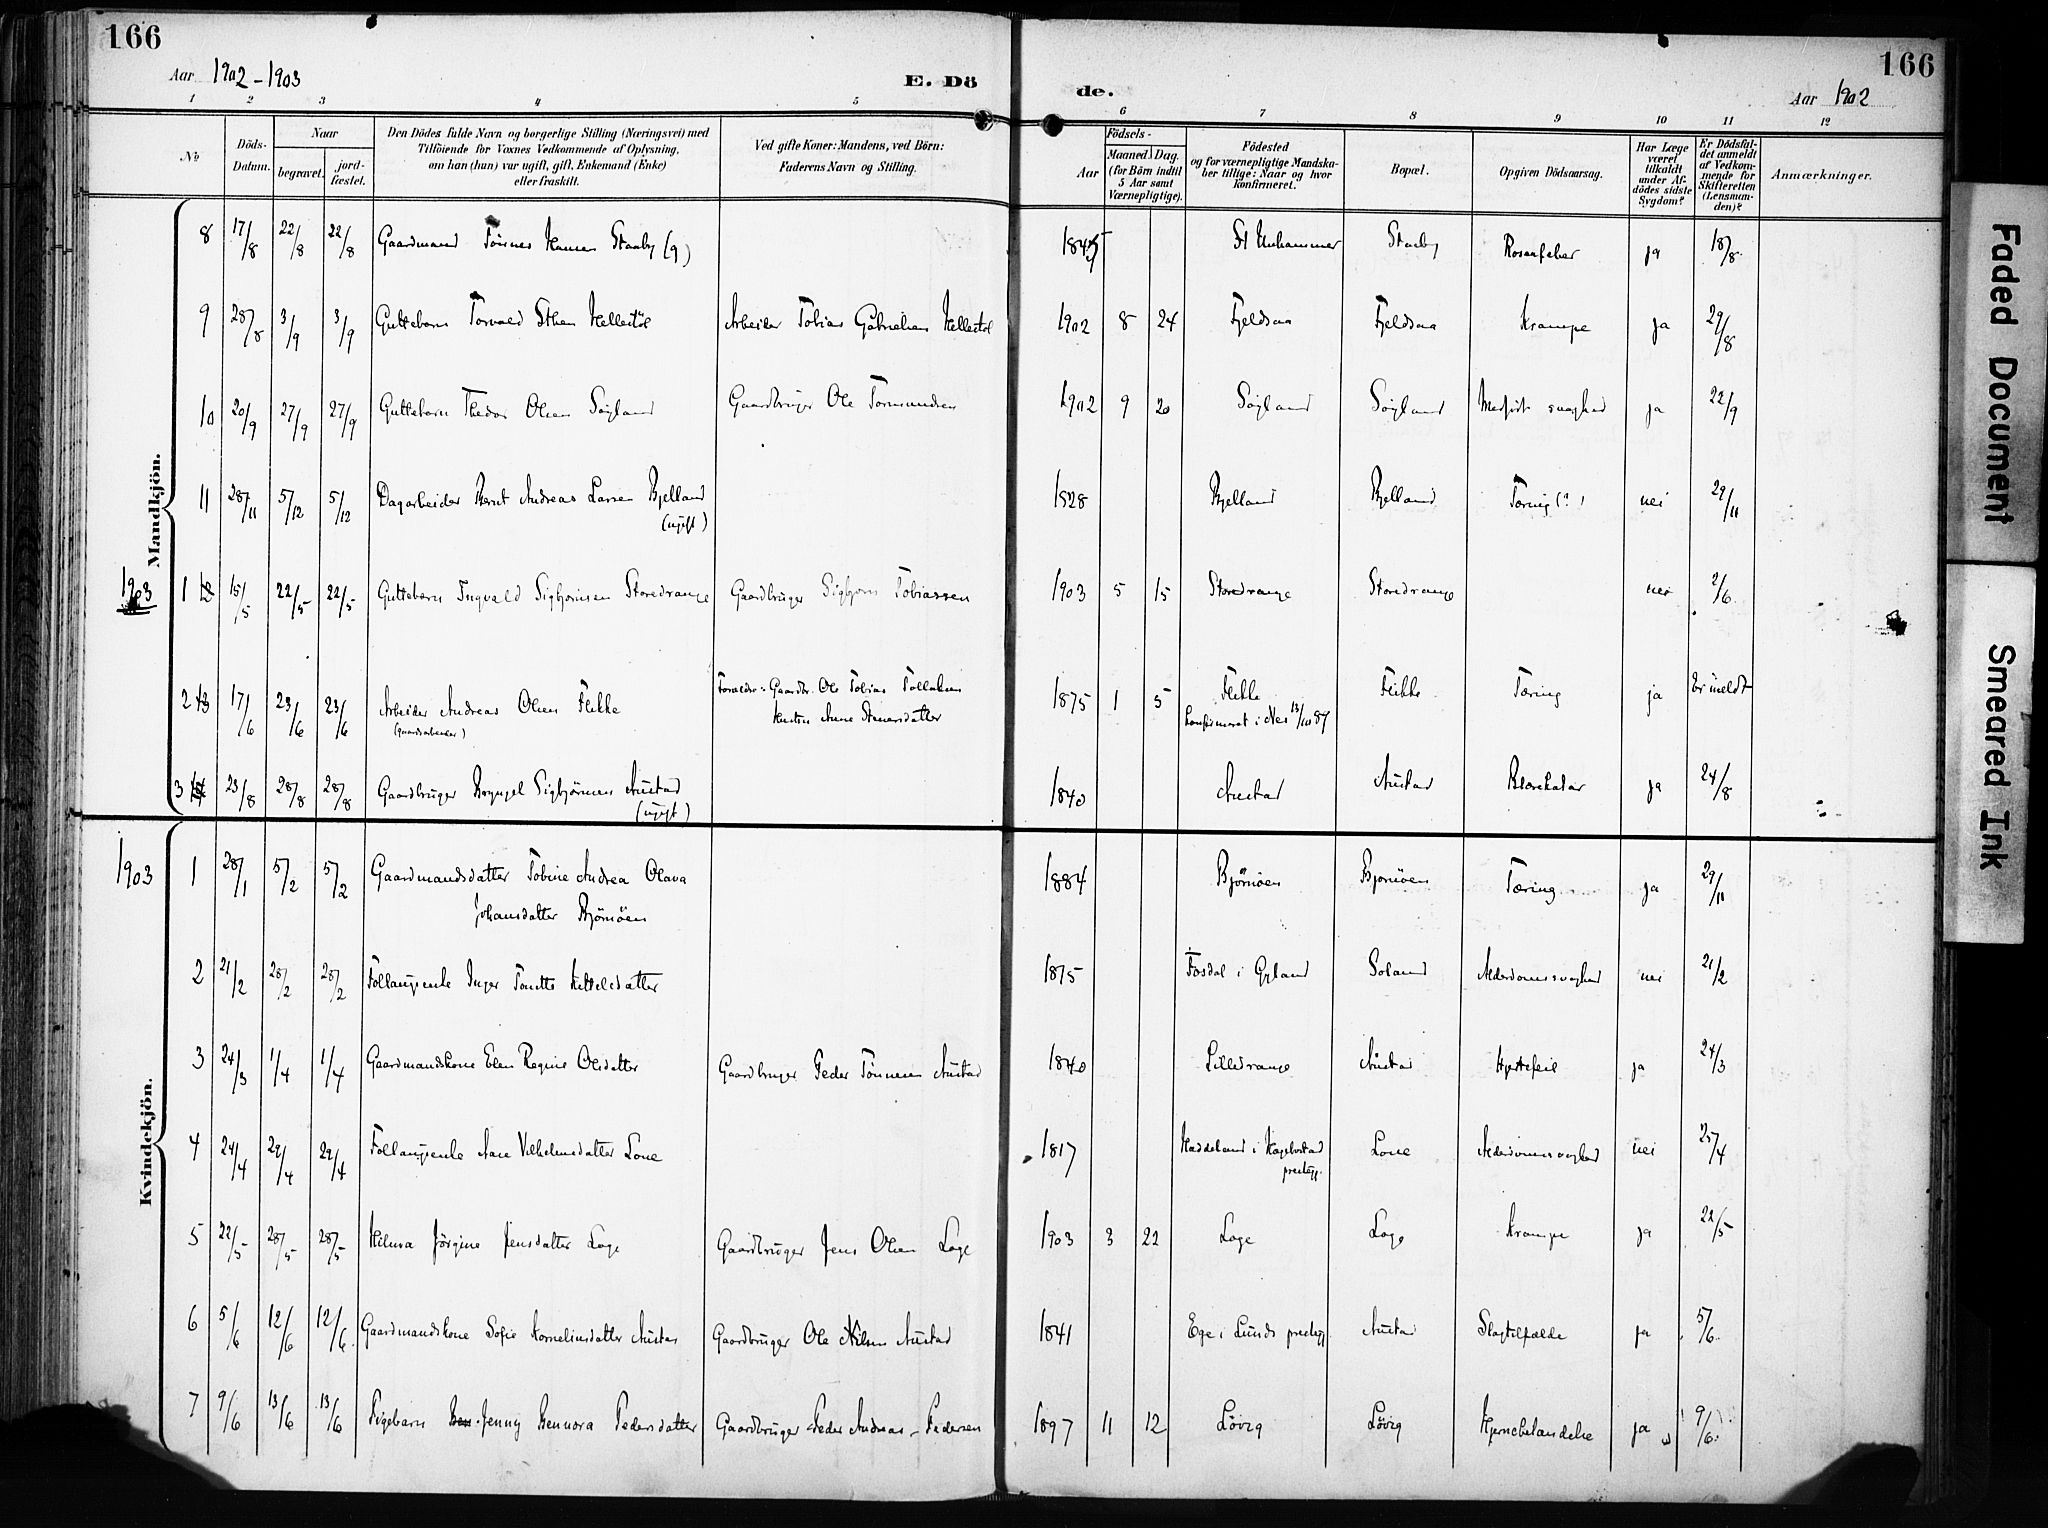 166
Aar 1902-1903
E. Dö
de.
Aar 1902
166
1 2 3 4 5 6 7 8 9 10 11 12
No
Döds-Datum.
Naar
begravet.
jord-fæstet.
Den Dödes fulde Navn og borgerlige Stilling (Næringsvei) med
Tilföiende for Voxnes Vedkommende af Oplysning,
om han (hun) var ugift, gift, Enkemand (Enke)
eller fraskilt.
Ved gifte Koner: Mandens, ved Börn:
Faderens Navn og Stilling.
Födsels-
Aar
Maaned. Dag.
(for Börn indtil
5 Aar samt
Værnepligtige).
Födested
og for værnepligtige Mandska-
ber tillige: Naar og hvor
konfirmeret.
Bopæl.
Opgiven Dödsaarsag.
Har Læge
været
tilkaldt
under Af-
dödes sidste
Sygdom?
Er Dödsfal-
det anmeldt
af Vedkom-
mende for
Skifteretten
(Lensman-
den)?
Anmærkninger.
Mandkjön.
8 17/8 22/8 22/8 Gaardmand Tönnes Hansen Staaby (g) 1845 Staaby Rosenfeber ja 18/8
9 28/8 3/9 3/9 Guttebarn Torvald Sthen Hellestöl Arbeider Tobias Gabrielsen Hellestöl 1902 8 24 Fjeldsaa Fjeldsaa Krampe ja 29/8
10 20/9 27/9 27/9 Guttebarn Theodor Olsen Söyland Gaardbruger Ole Tormundsen 1902 9 20 Söyland Söyland Medfödt svaghed ja 22/9
11 28/11 5/12 5/12 Dagarbeider Bernt Andreas Larsen Bjelland 1828 Bjelland Bjelland Tæring (?) nei 29/11
(ugift)
1903
1 12 15/5 22/5 22/5 Guttebarn Ingvald Sigbjörnsen Storedrange Gaardbruger Sigbjörn Tobiassen 1903 5 15 Storedrange Storedrange nei 2/6
2 13 17/6 23/6 23/6 Arbeider Andreas Olsen Flikke Forældre: Gaardbr. Ole Tobias Tollaksen 1875 1 5 Flikke Flikke Tæring ja Er meldt
(gaardarbeider) Hustru Anne Stenersdatter Konfirmeret i Nes 13/10 89
3 14 23/8 28/8 28/8 Gaardbruger Bryngel Sigbjörnsen Austad 1840 Austad Austad Blærekatar ja 24/8
(ugift)
Kvindekjön.
1903 1 28/1 5/2 5/2 Gaardmandsdatter Tobine Andrea Olava 1884 Björnöen Björnöen Tæring ja 29/11
Johansdatter Björnöen
2 21/2 28/2 28/2 Follaugsenke Inger Tonette Kittelsdatter 1815 Fosdal i Gyland Soland Alderdomssvaghed nei 21/2
3 24/3 1/4 1/4 Gaardmandskone Elen Regine Olsdatter Gaardbruger Peder Tönnesen Austad 1840 Lilledrange Austad Hjertefeil ja 24/3
4 24/4 29/4 29/4 Follaugsenke Ane Vilhelmsdatter Lone 1817 Haddeland i Hægebostad Lone Alderdomssvaghed nei 25/4
prestegj.
5 22/5 28/5 28/5 Hilma Jörgine Jensdatter Loge Gaardbruger Jens Olsen Loge 1903 3 22 Loge Loge Krampe ja 22/5
6 5/6 12/6 12/6 Gaardmandskone Sofie Kornelinsdatter Austad Gaardbruger Ole Nilsen Austad 1841 Ege i Lunds prestegj. Austad Slagtilfælde ja 5/6
7 9/6 13/6 13/6 Pigebarn Jenny Bennora Pedersdatter Gaardbruger Peder Andreas Pedersen 1897 11 12 Lövig Lövig Hjernebetændelse ja 9/6
Faded Document
Smeared Ink